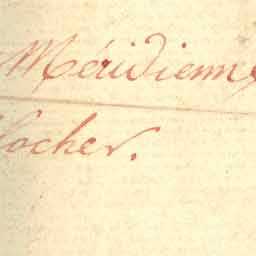 Méridienne
locher.